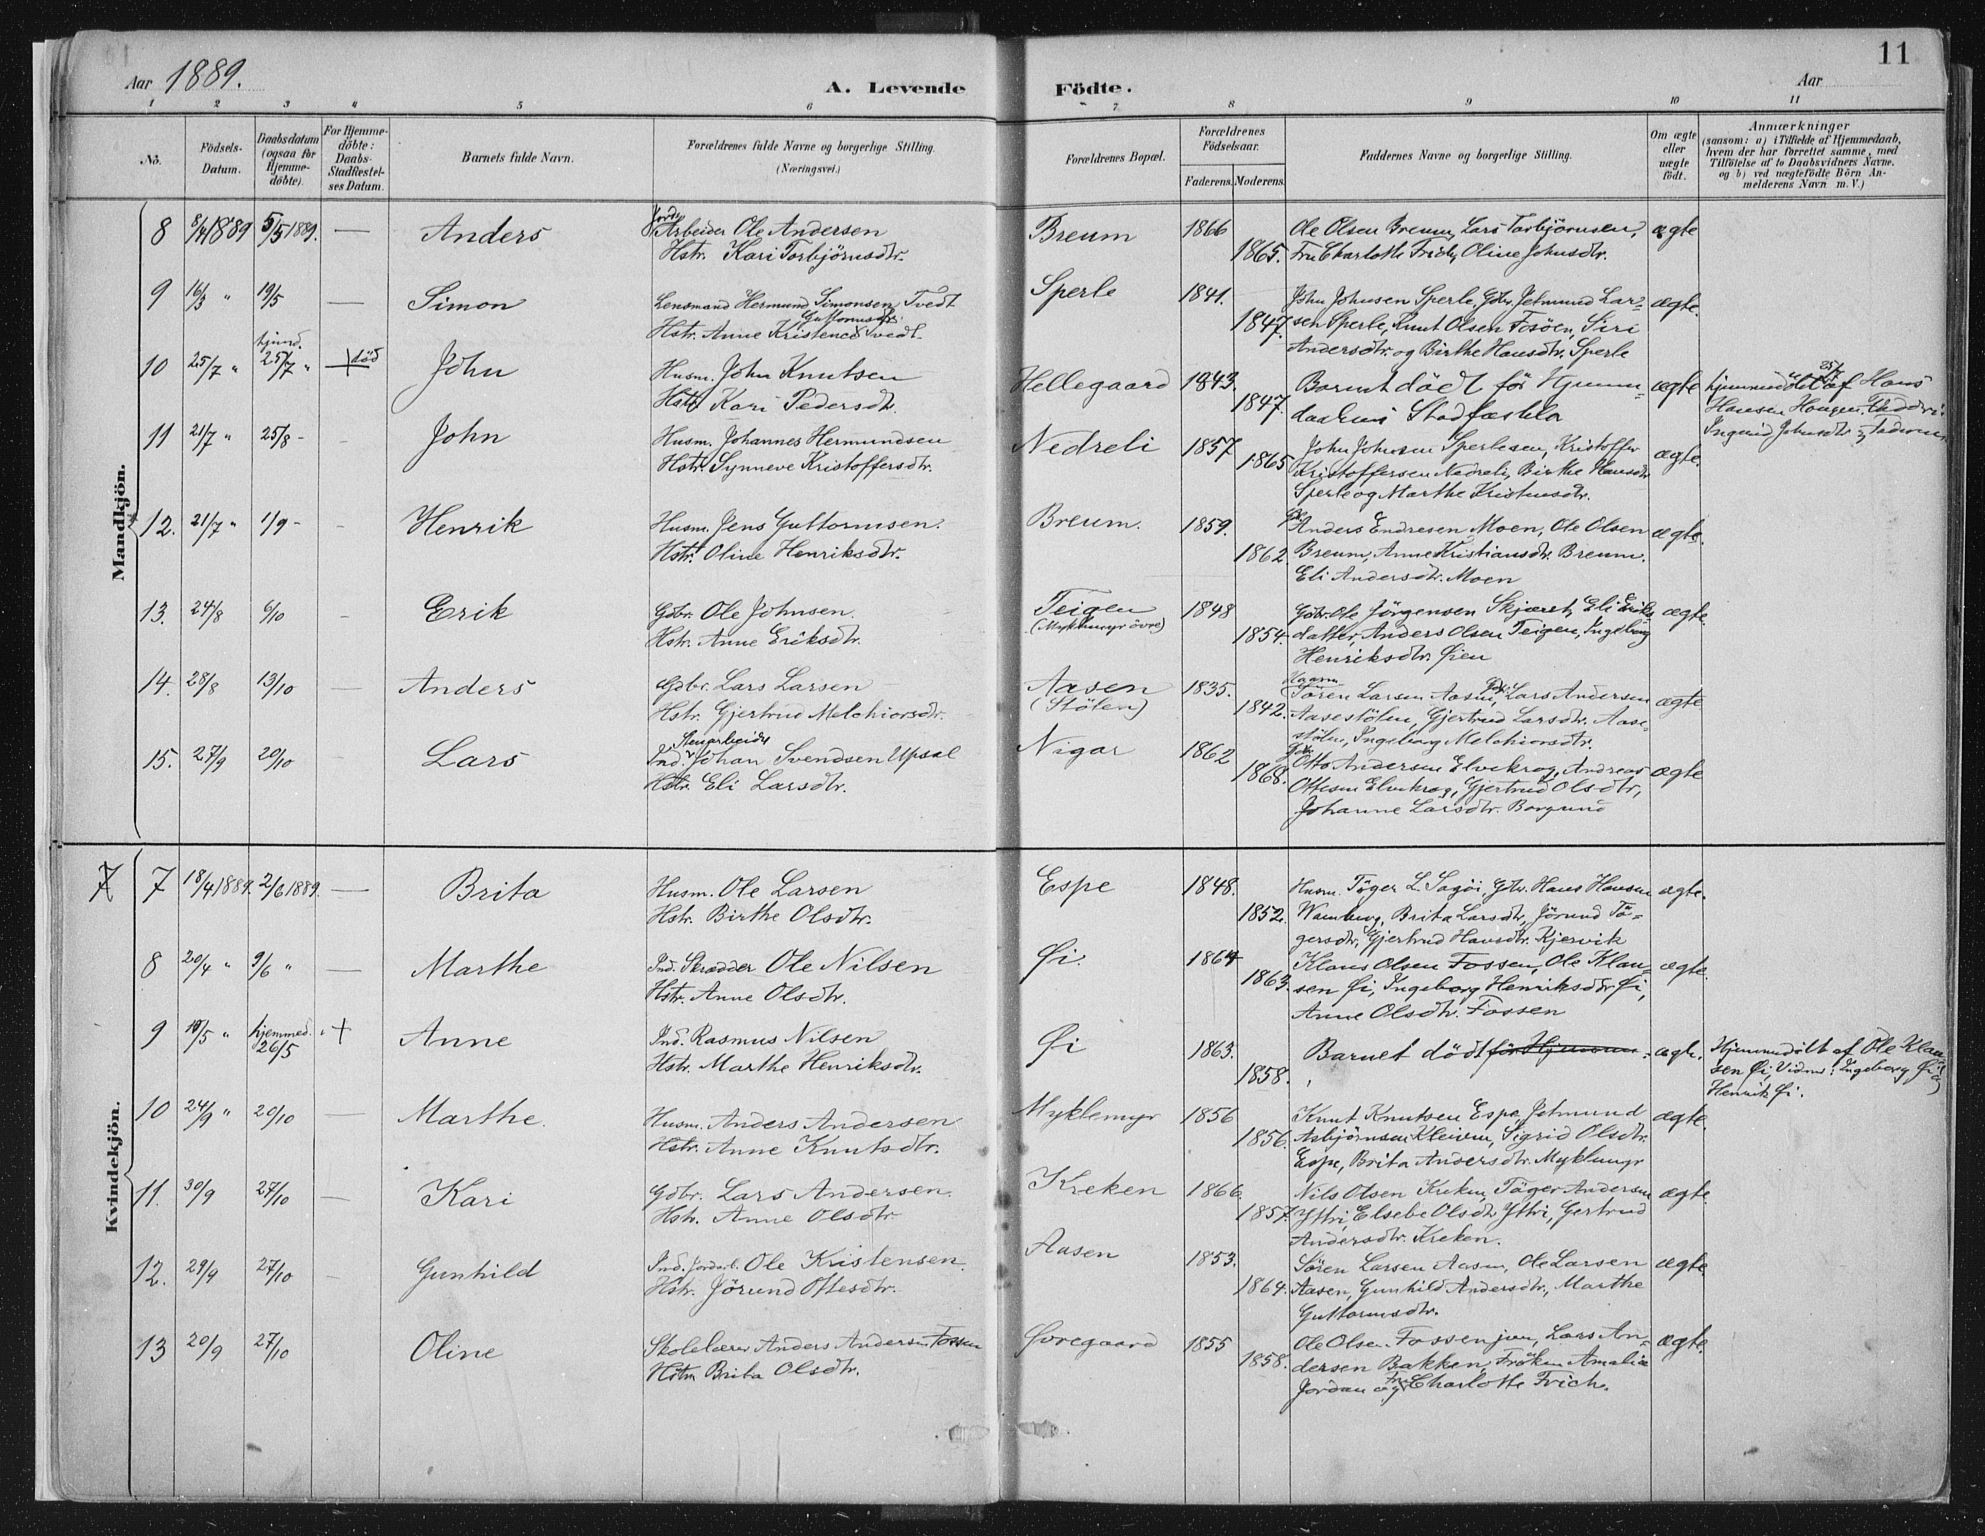 11
Aar 1889.
A. Levende Födte.
Aar
1 2 3 4 5 6 7 8 9 10 11
No.
Födsels-Datum.
Daabsdatum (ogsaa for Hjemme-döbte).
For Hjemme-döbte: Daabs-Stadfestel-ses Datum.
Barnets fulde Navn.
Forældrenes fulde Navne og borgerlige Stilling. (Næringsvei.)
Forældrenes Bopæl.
Forældrenes Födselsaar.
Faderens. Moderens.
Faddernes Navne og borgerlige Stilling.
Om ægte eller uægte födt.
Anmærkninger
(saasom: a) i Tilfælde af Hjemmedaab,
hvem der har forrettet samme, med
Tilföielse af to Daabsvidners Navne.
og b) ved uægtefödte Börn An-
melderens Navn m. V.)
Mandkjön.
8 8/4 1889 5/5 1889. — Anders
Jords
Arbeider Ole Andersen
Hstr. Kari Torbjörnsdtr.
Breum 1866 1865.
Ole Olsen Breum, Lars Torbjörnsen,
Fru Charlotte Frich, Oline Johnsdtr.
ægte
9 16/3 " 19/5 — Simon
Lensmand Hermund Simonsen Tvedt
Guttormsdtr.
Hstr. Anne Kristence Tvedt.
Sperle 1841. 1847.
John Johnsen Sperle, Gbr. Jetmund Lar=
sen Sperle, Knut Olsen Fosöen, Siri
Andersdtr. og Birthe Hansdtr. Sperle
ægte.
10 25/7 " hjemd. 25/7 " + död John
Husm. John Knutsen
Hstr. Kari Pedersdtr.
Hellegaard 1843. 1847.
Barnet dödt för Hjemme=
daabens Stadfæstelse
ægte
hjemmedöbt 25/7 af Hans
Hansen Haugen,
Ingerid Johnsdtr.
11 21/7 " 25/8 - - John
Husm. Johannes Hermundsen
Hstr. Synneve Kristoffersdtr.
Nedreli 1857 1865
John Johnsen Sperlesen, Kristoffer
Kristoffersen Nedreli, Birthe Hansdtr.
Sperle og Marthe Kristensdtr.
ægte.
12. 21/7 " 1/9 - - Henrik
Husm. Jens Guttormsen.
Hstr. Oline Henriksdtr.
Breum. 1859. 1862.
Gbr. Anders Endresen Moen, Ole Olsen
Breum, Anne Kristiansdtr. Breum.
Eli Andersdtr. Moen
ægte.
13. 24/8 6/10 - Erik
Gdbr. Ole Johnsen
Hstr. Anne Eriksdtr.
Teigen
(Myklemyr övre)
1848 1854.
Gdbr. Ole Jörgensen Skjæret, Eli Eriks
datter, Anders Olsen Teigen, Ingeborg
Henriksdtr. Øien
ægte.
14. 28/8 13/10 — Anders
Gdbr. Lars Larsen
Hstr. Gjertrud Melchiorsdtr.
Aasen
(Stölen)
1835. 1842.
Sören Larsen Aasen, Gbr. Lars Andersen
Aasestölen, Gjertrud Larsdtr. Aase=
stölen, Ingeborg Melchiorsdtr.
ægte
15. 27/9 20/10 — Lars
Stenarbeider
Ind. Johan Svendsen Upsal
Hstr. Eli Larsdtr.
Nigar 1862 1868.
Gbr.
Otto Andersen Elvekrog, Andreas
Ottesen Elvekrog, Gjertrud Olsdtr,
Johanne Larsdtr. Borgund
ægte
Kvindekjön.
7 7 18/4 1889. 2/6 1889. — Brita
Husm. Ole Larsen
Hstr. Birthe Olsdtr.
Espe 1848. 1852.
Husm. Töger L. Sagöi, Gbr. Hans Hansen
Wamberg, Brita Larsdtr, Jörund Tö=
gersdtr, Gjertrud Hansdtr. Kjervik
ægte.
8 20/4 " 9/6 " — Marthe
Ind. Skrædder Ole Nilsen
Hstr. Anne Olsdtr.
Øi. 1864 1863.
Klaus Olsen Fossen, Ole Klau=
sen Øi, Ingeborg Henriksdtr Øi,
Anne Olsdtr. Fossen
ægte.
9 /5 " hjemmed. 26/5 " + Anne
Ind. Rasmus Nilsen
Hstr. Marthe Henriksdtr.
Øi 1863. 1858.
Barnet dödt för Hjemme=
ægte.
Hjemmedöbt af Ole Klau
sen Øi, Vidner: Ingeborg Øi og
Henrik Øi.
10 24/9 " 20/10 — Marthe.
Husm. Anders Andersen
Hstr. Anne Knutsdtr.
Myklemyr 1856 1856.
Knut Knutsen Espe, Jetmund
Asbjörnsen Kleiven, Sigrid Olsdtr.
Espe, Brita Andersdtr. Myklemyr
ægte.
11. 30/9 27/10 — Kari
Gdbr. Lars Andersen.
Hstr. Anne Olsdtr
Kreken 1866. 1857.
Nils Olsen Kreken, Töger Andersen
Yttri, Elsebe Olsdtr Yttri, Gertrud
Andersdtr. Kreken.
ægte
12. 29/9 27/10 - Gunhild
Ind. Jordarb. Ole Kristensen.
Hstr. Jörund Ottesdtr.
Aasen 1853. 1864.
Sören Larsen Aasen, Ole Larsen
Aasen, Gunhild Andersdtr., Marthe
Guttormsdtr.
ægte.
13 20/9 27/10 Oline
Skolelærer Anders Andersen Fossen
Hstr. Brita Olsdtr.
Øvregaard 1855 1858.
Ole Olsen Fossen jun, Lars An=
dersen Bakken, Fröken Amalie
Jordan og Fru Charlotte Frich.
ægte.